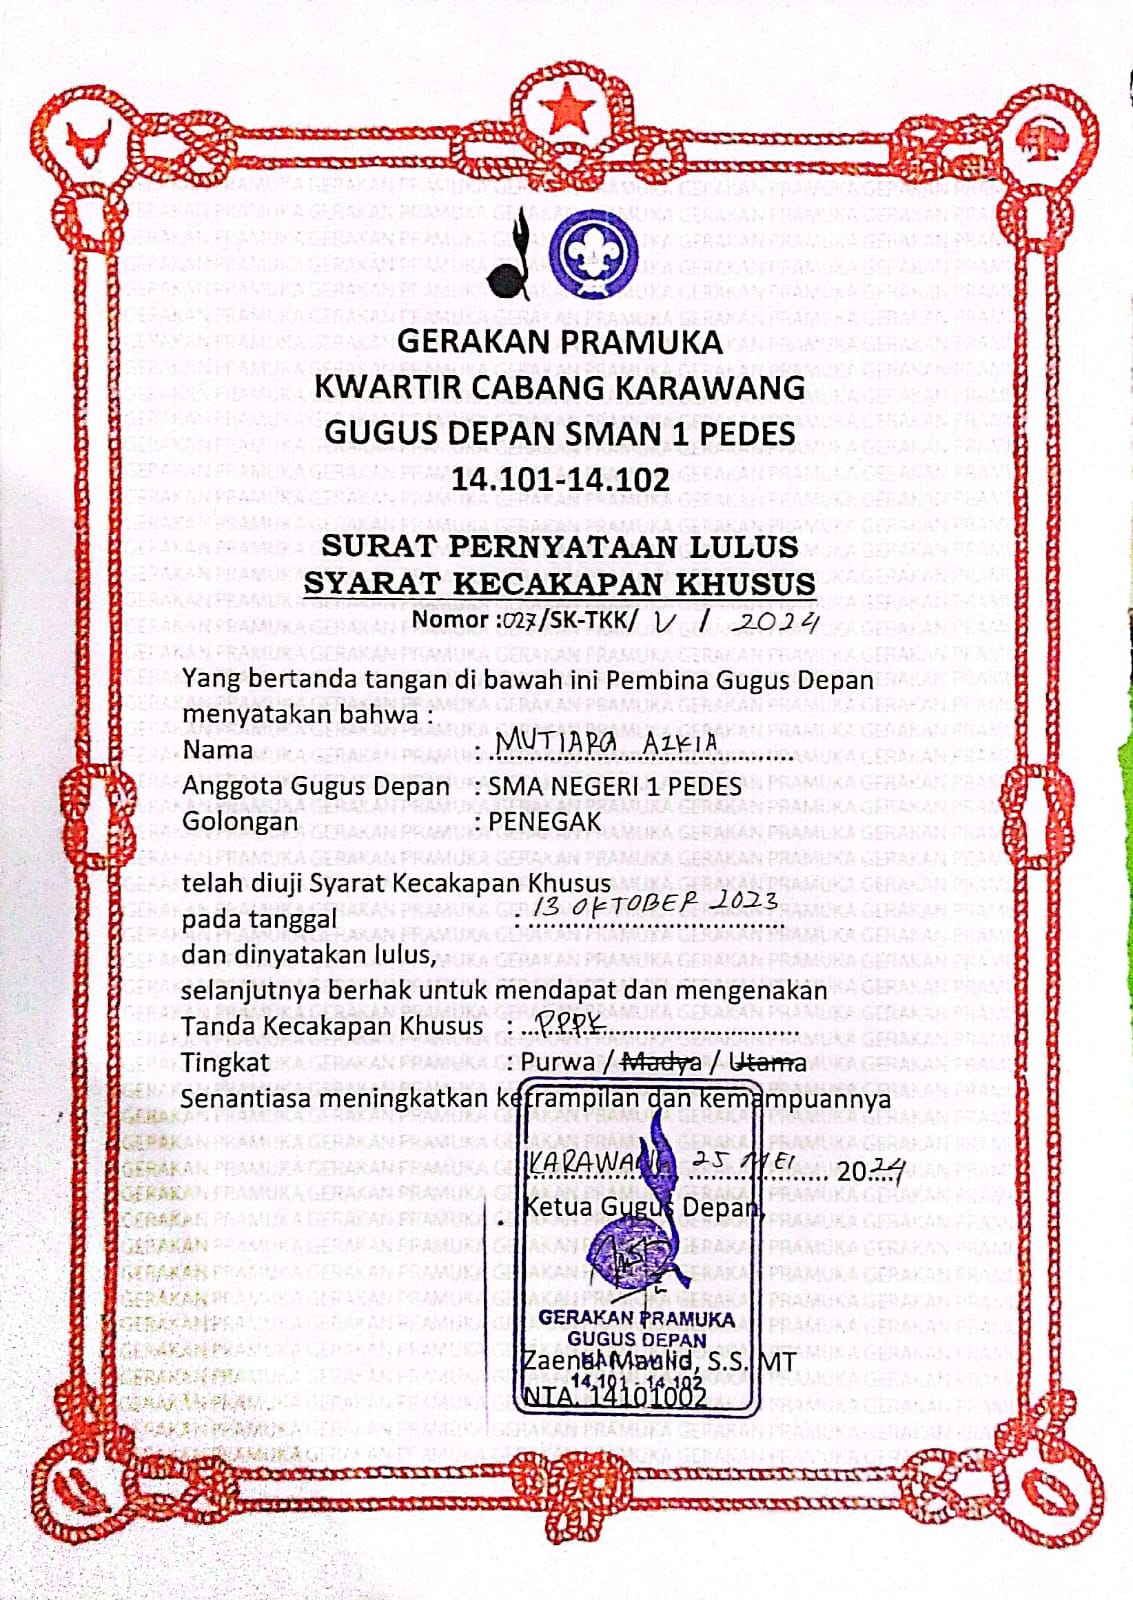 GERAKAN PRAMUKA
KWARTIR CABANG KARAWANG
GUGUS DEPAN SMAN 1 PEDES
14.101-14.102
SURAT PERNYATAAN LULUS
SYARAT KECAKAPAN KHUSUS
Nomor :027/SK-TKK/ V / 2024
Yang bertanda tangan di bawah ini Pembina Gugus Depan
menyatakan bahwa :
Nama : MUTIARA AZKIA
Anggota Gugus Depan : SMA NEGERI 1 PEDES
Golongan : PENEGAK
telah diuji Syarat Kecakapan Khusus
pada tanggal : 13 OKTOBER 2023
dan dinyatakan lulus,
selanjutnya berhak untuk mendapat dan mengenakan
Tanda Kecakapan Khusus : PPPK
Tingkat : Purwa / Madya / Utama
Senantiasa meningkatkan ketrampilan dan kemampuannya
KARAWANG 25 MEI 2024
Ketua Gugus Depan,
GERAKAN PRAMUKA
GUGUS DEPAN
Zaenal Maulid, S.S. MT
14.101 - 14.102
NTA. 14101002